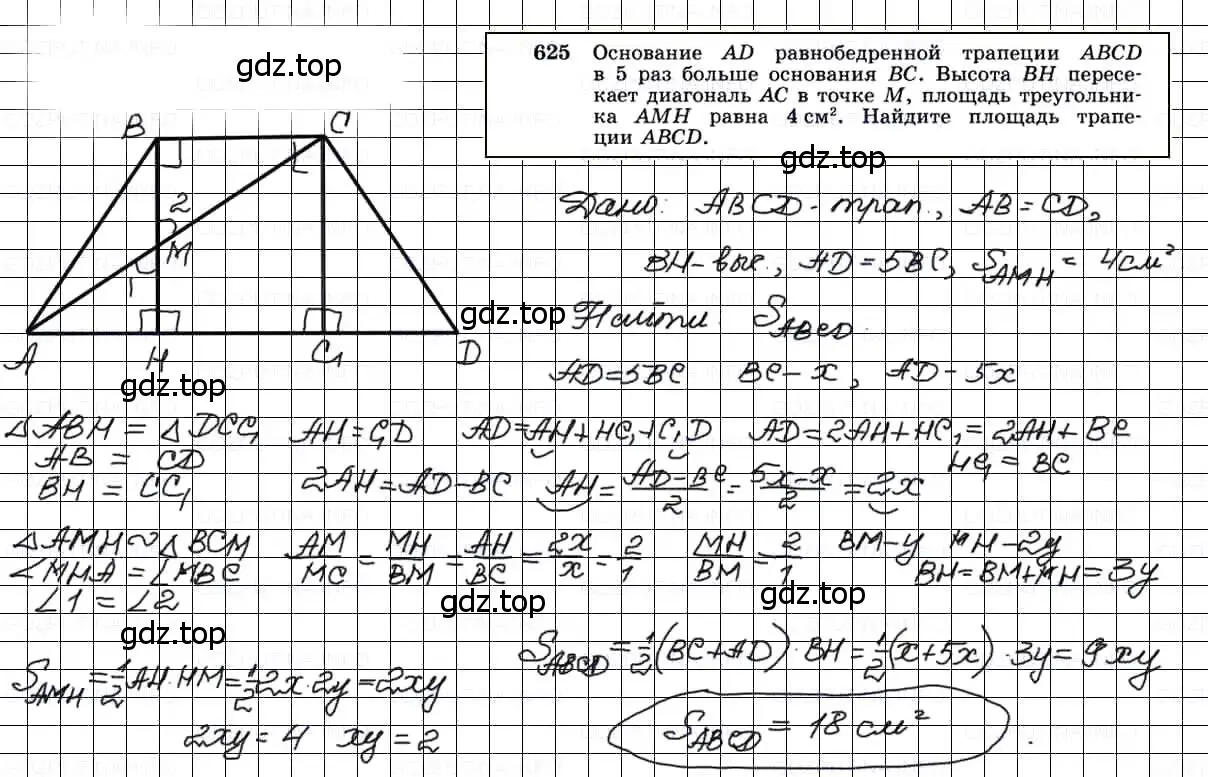 gdz.top
625 Основание AD равнобедренной трапеции ABCD
в 5 раз больше основания BC. Высота BH пересе-
кает диагональ AC в точке M, площадь треугольни-
ка AMH равна 4 см². Найдите площадь трапе-
ции ABCD.
gdz.top
B C
2
M
1
A H C₁ D
gdz.top
gdz.top
Дано: ABCD - трап., AB = CD,
BH - выс., AD = 5BC, S_AMH = 4 см²
Найти: S_ABCD.
AD = 5BC BC - x, AD - 5x
△ABH = △DCC₁ AH = C₁D AD = AH + HC₁ + C₁D AD = 2AH + HC₁ = 2AH + BC
AB = CD HC₁ = BC
BH = CC₁ 2AH = AD - BC AH = (AD - BC)/2 = (5x - x)/2 = 2x
△AMH ~ △BCM AM/MC = MH/BM = AH/BC = 2x/x = 2/1 MH/BM = 2/1 BM - y MH - 2y
∠MHA = ∠MBC BH = BM + MH = 3y
∠1 = ∠2
gdz.top
gdz.top
gdz.top
S_ABCD = 1/2 (BC + AD) · BH = 1/2 (x + 5x) · 3y = 9xy
S_AMH = 1/2 AH · HM = 1/2 2x · 2y = 2xy
2xy = 4 xy = 2
S_ABCD = 18 см².